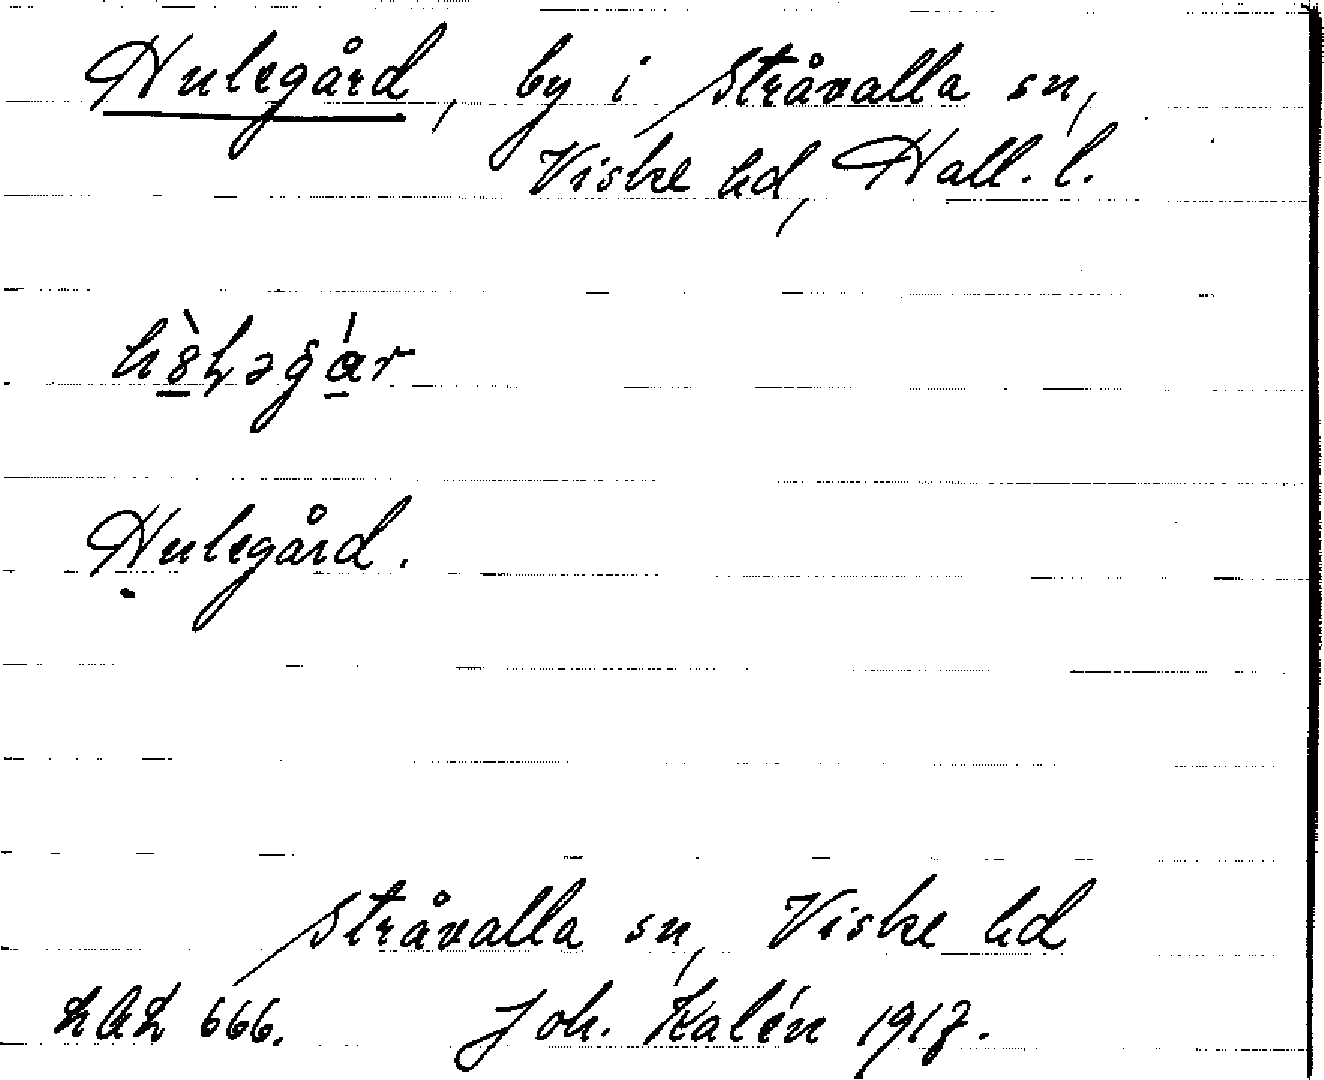 Hulegård, by i Stråvalla sn,
Viske hd, Hall. l.
Hulegård.
Stråvalla sn, Viske hd
LAL 666. Joh. Kalén 1917.